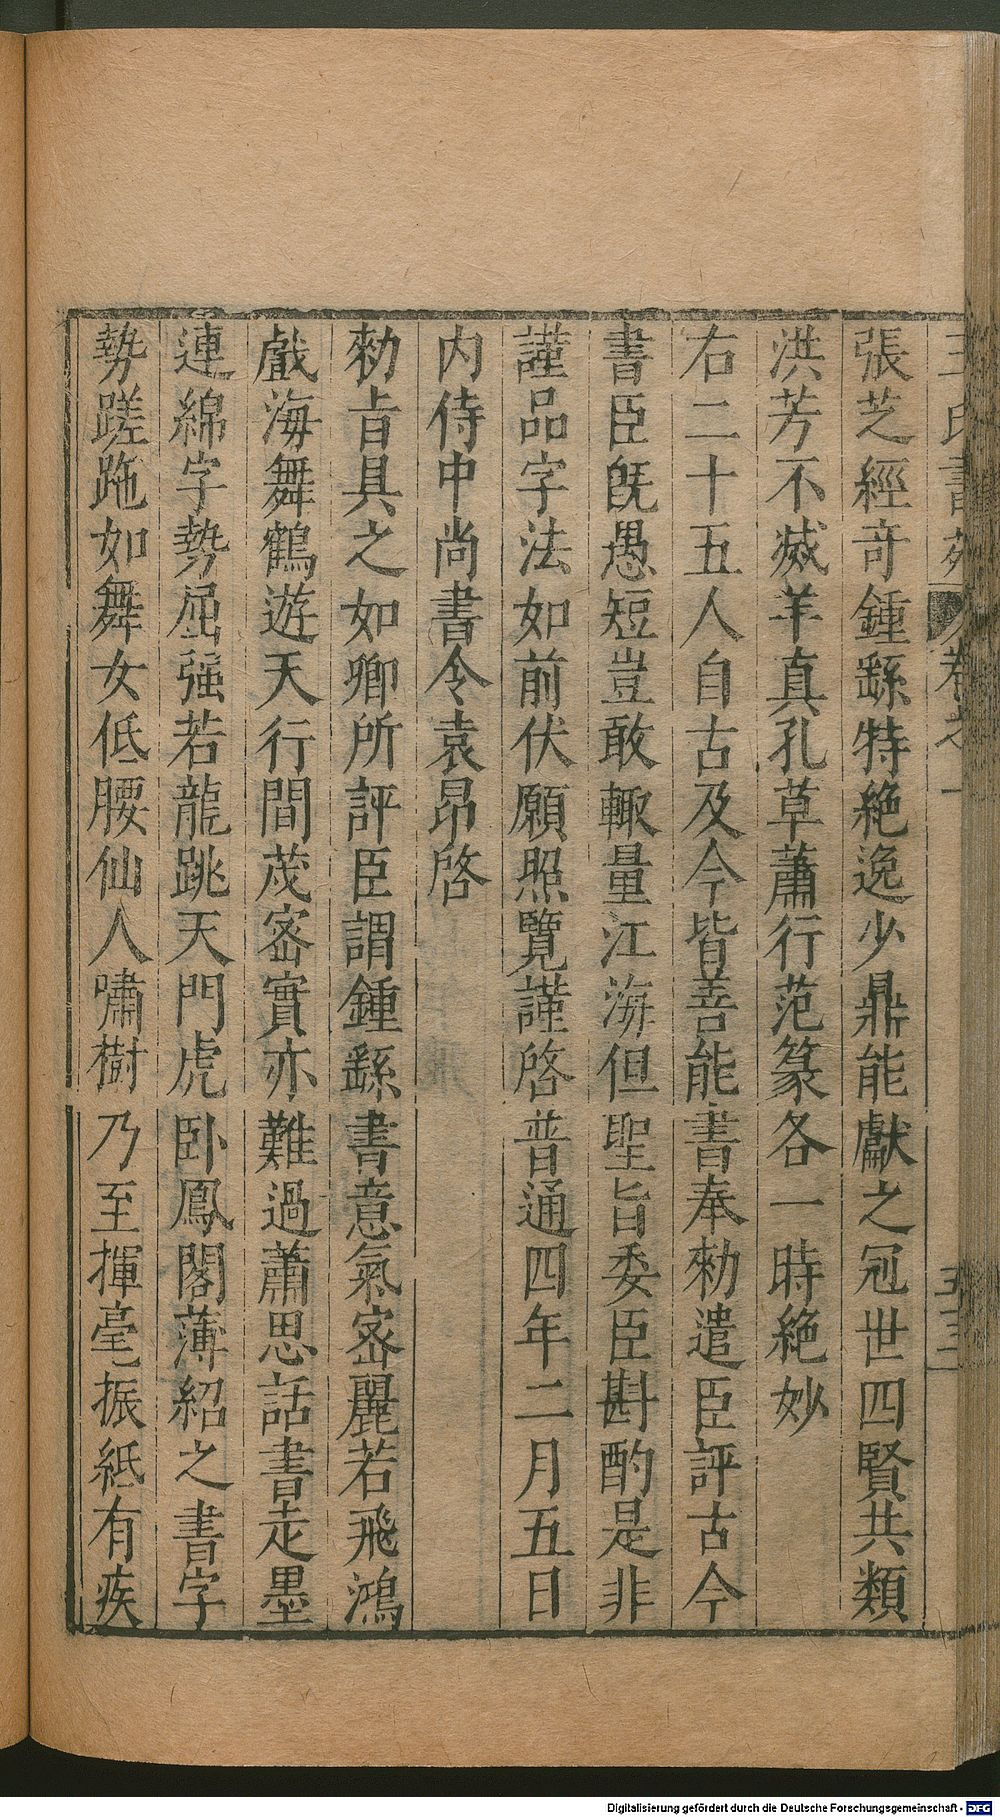 王氏書苑 卷之一 五三
張芝經奇鍾繇特絶逸少鼎能獻之冠世四賢共類
洪芳不滅羊真孔草蕭行范篆各一時絶妙
右二十五人自古及今皆善能書奉勑遣臣評古今
書臣旣愚短豈敢輙量江海但聖旨委臣斟酌是非
謹品字法如前伏願照覽謹啓普通四年二月五日
内侍中尚書令袁昂啓
勑旨具之如卿所評臣謂鍾繇書意氣宻麗若飛鴻
戲海舞鶴遊天行間茂宻實亦難過蕭思話書走墨
連綿字勢屈强若龍跳天門虎卧鳳閣薄紹之書字
勢蹉跎如舞女低腰仙人嘯樹乃至揮毫振紙有疾
Digitalisierung gefördert durch die Deutsche Forschungsgemeinschaft - DFG